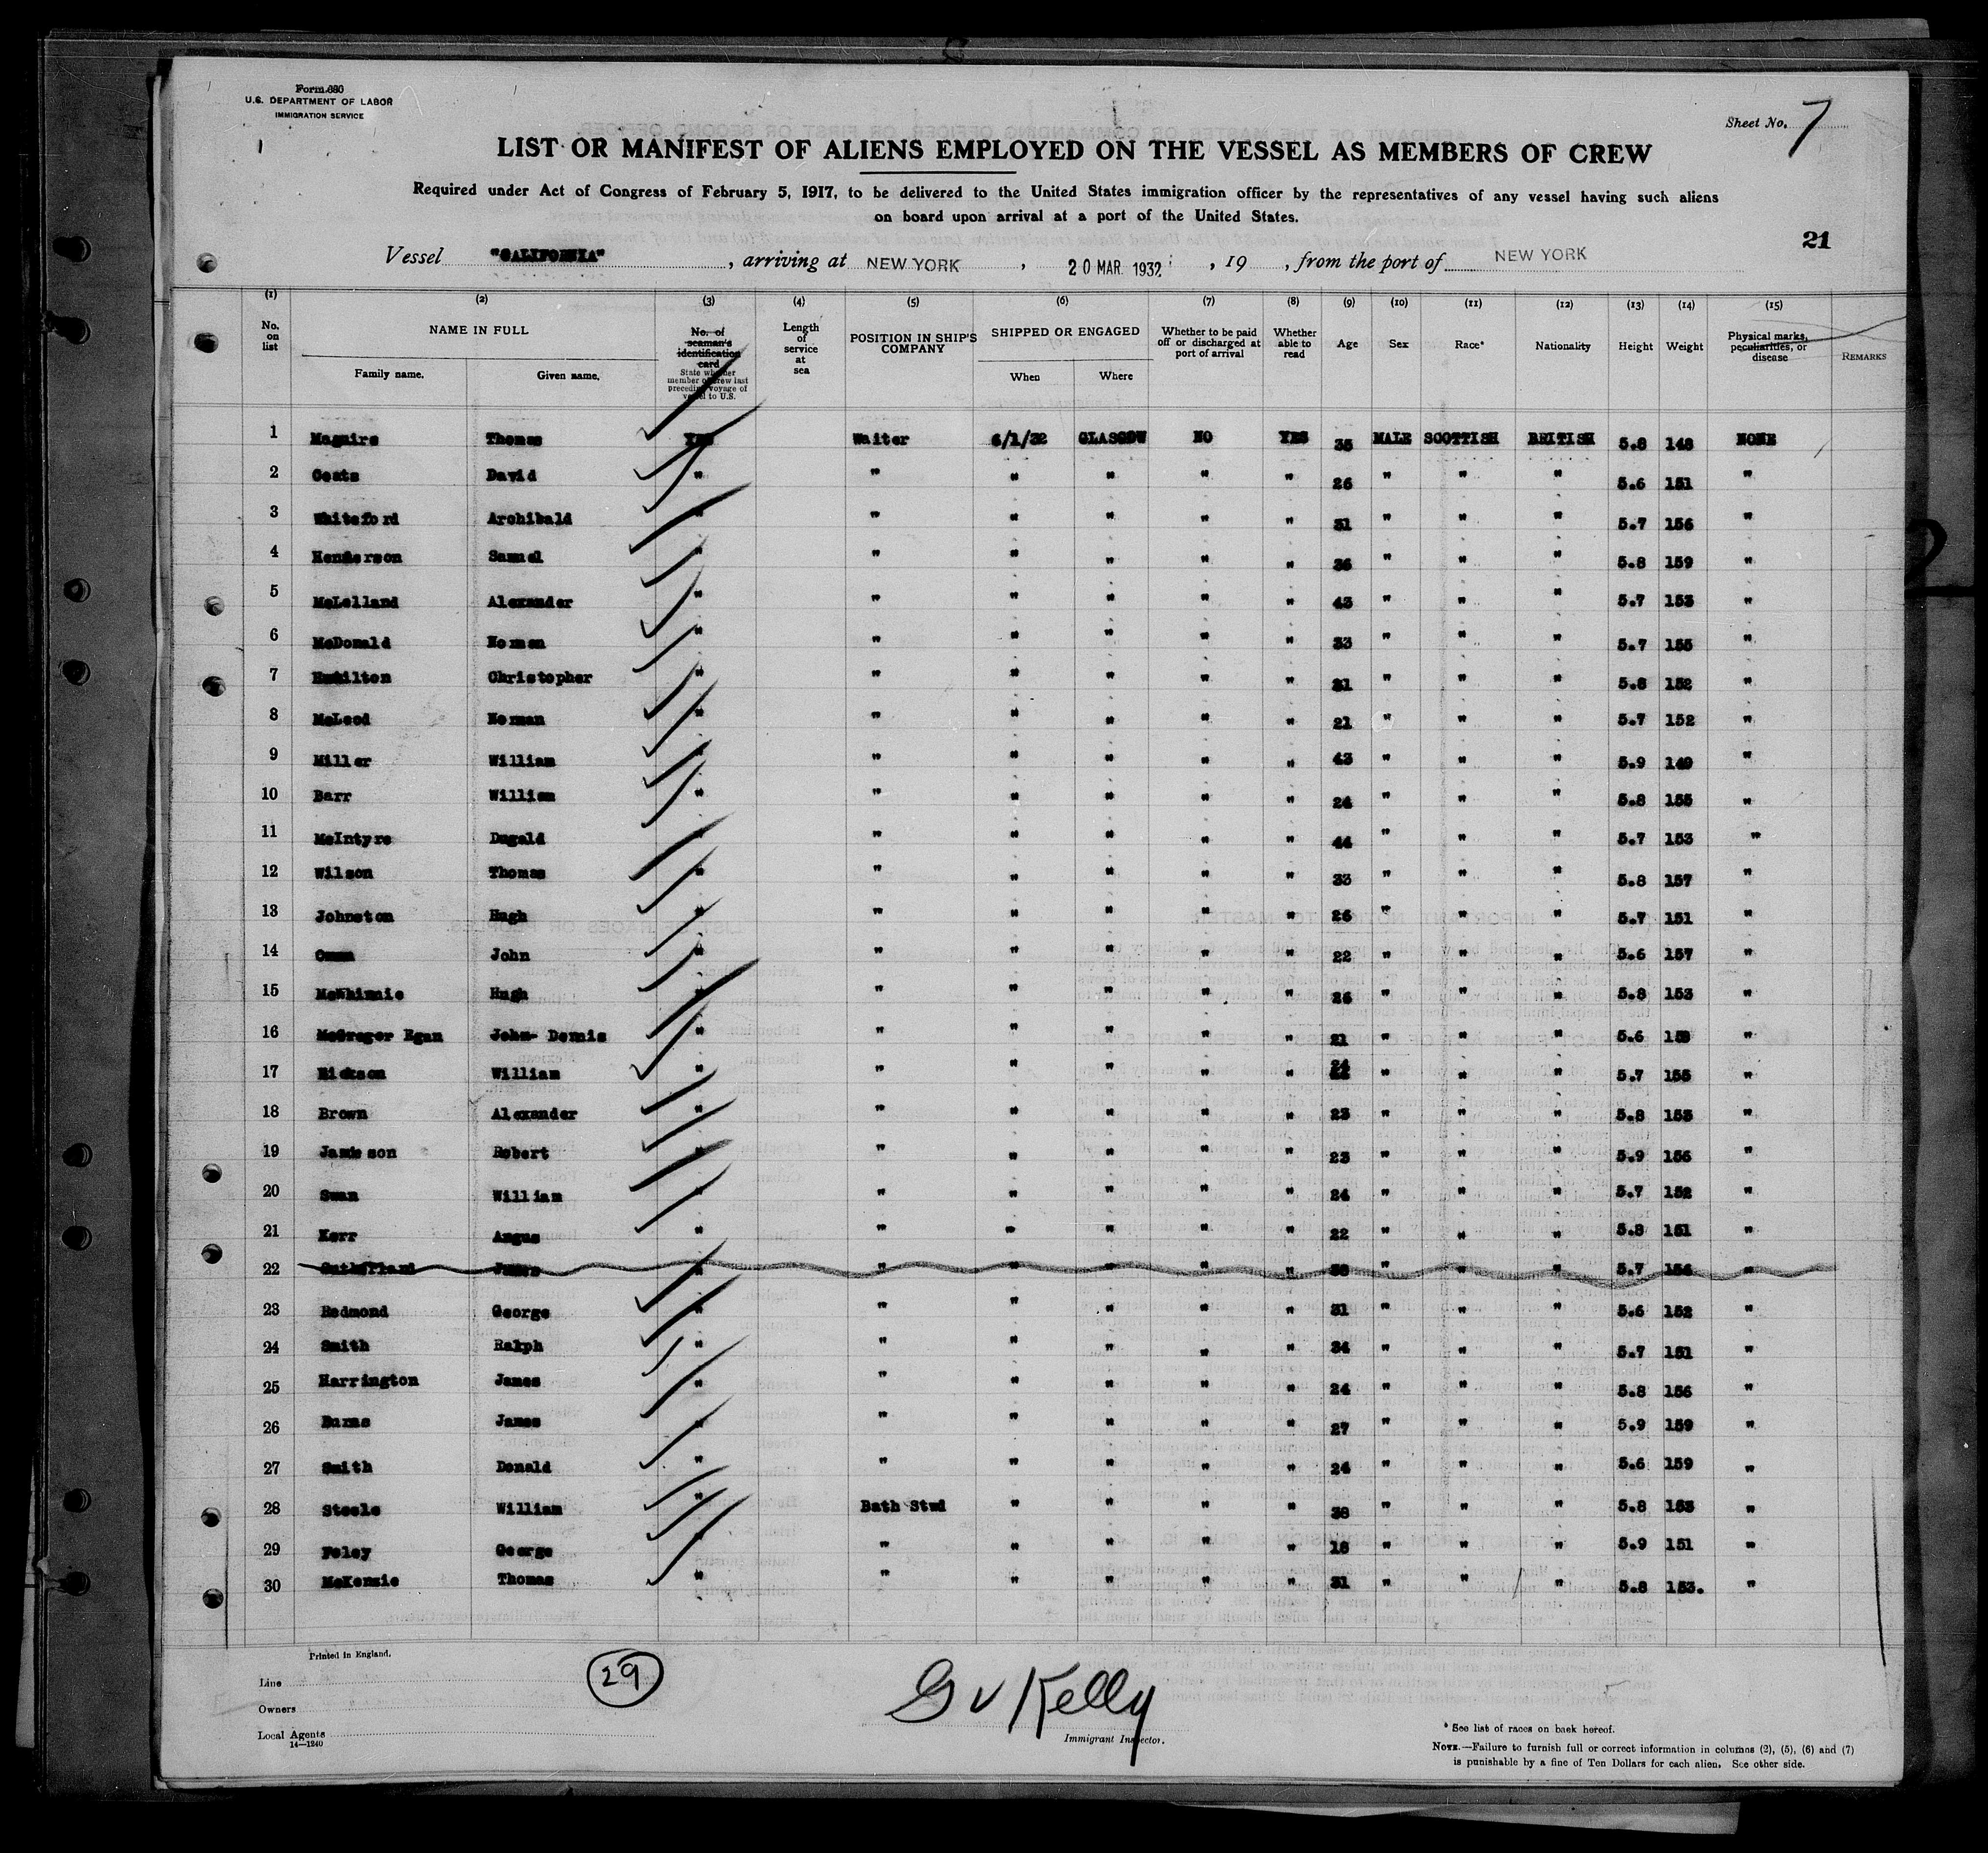 Form 680
U.S. DEPARTMENT OF LABOR
IMMIGRATION SERVICE
Sheet No. 7
LIST OR MANIFEST OF ALIENS EMPLOYED ON THE VESSEL AS MEMBERS OF CREW
Required under Act of Congress of February 5, 1917, to be delivered to the United States immigration officer by the representatives of any vessel having such aliens
on board upon arrival at a port of the United States.
21
Vessel "CALIFORNIA", arriving at NEW YORK, 20 MAR 1932, 19, from the port of NEW YORK
(1) (2) (3) (4) (5) (6) (7) (8) (9) (10) (11) (12) (13) (14) (15)
No. on list NAME IN FULL Family name. Given name. No. of seaman's identification card State whether member of crew last preceding voyage of vessel to U.S. Length of service at sea POSITION IN SHIP'S COMPANY SHIPPED OR ENGAGED When Where Whether to be paid off or discharged at port of arrival Whether able to read Age Sex Race* Nationality Height Weight Physical marks, peculiarities, or disease REMARKS
1 Maguire Thomas YES Waiter 6/1/32 GLASGOW NO YES 35 MALE SCOTTISH BRITISH 5.8 148 NONE
2 Coats David " " " " " " 26 " " " 5.6 151 "
3 Whiteford Archibald " " " " " " 31 " " " 5.7 156 "
4 Henderson Samuel " " " " " " 36 " " " 5.8 159 "
5 McLelland Alexander " " " " " " 43 " " " 5.7 153 "
6 McDonald Norman " " " " " " 33 " " " 5.7 155 "
7 Hamilton Christopher " " " " " " 31 " " " 5.8 152 "
8 McLeod Norman " " " " " " 21 " " " 5.7 152 "
9 Miller William " " " " " " 43 " " " 5.9 149 "
10 Barr William " " " " " " 24 " " " 5.8 155 "
11 McIntyre Dugald " " " " " " 44 " " " 5.7 153 "
12 Wilson Thomas " " " " " " 33 " " " 5.8 157 "
13 Johnston Hugh " " " " " " 26 " " " 5.7 151 "
14 John " " " " " " 22 " " " 5.6 157 "
15 McWhinnie Hugh " " " " " " 26 " " " 5.8 153 "
16 McGregor Egan John Dennis " " " " " " 21 " " " 5.6 "
17 William " " " " " " 24 " " " 5.7 155 "
18 Brown Alexander " " " " " " 23 " " " 5.8 153 "
19 Jamieson Robert " " " " " " 23 " " " 5.9 156 "
20 Swan William " " " " " " 24 " " " 5.7 152 "
21 Kerr Angus " " " " " " 22 " " " 5.8 151 "
22 Sutherland James " " " " " " " " " 5.7 156 "
23 Redmond George " " " " " " 31 " " " 5.6 152 "
24 Smith Ralph " " " " " " 34 " " " 5.7 151 "
25 Harrington James " " " " " " 24 " " " 5.8 156 "
26 Burns James " " " " " " 27 " " " 5.9 159 "
27 Smith Donald " " " " " " 24 " " " 5.6 159 "
28 Steele William " Bath Stwd " " " " 38 " " " 5.8 153 "
29 Foley George " " " " " " 18 " " " 5.9 151 "
30 McKenzie Thomas " " " " " " 31 " " " 5.8 153. "
Printed in England.
29
Line
Owners
Local Agents
14—1240
G V Kelly
Immigrant Inspector.
* See list of races on back hereof.
NOTE.—Failure to furnish full or correct information in columns (2), (5), (6) and (7)
is punishable by a fine of Ten Dollars for each alien. See other side.